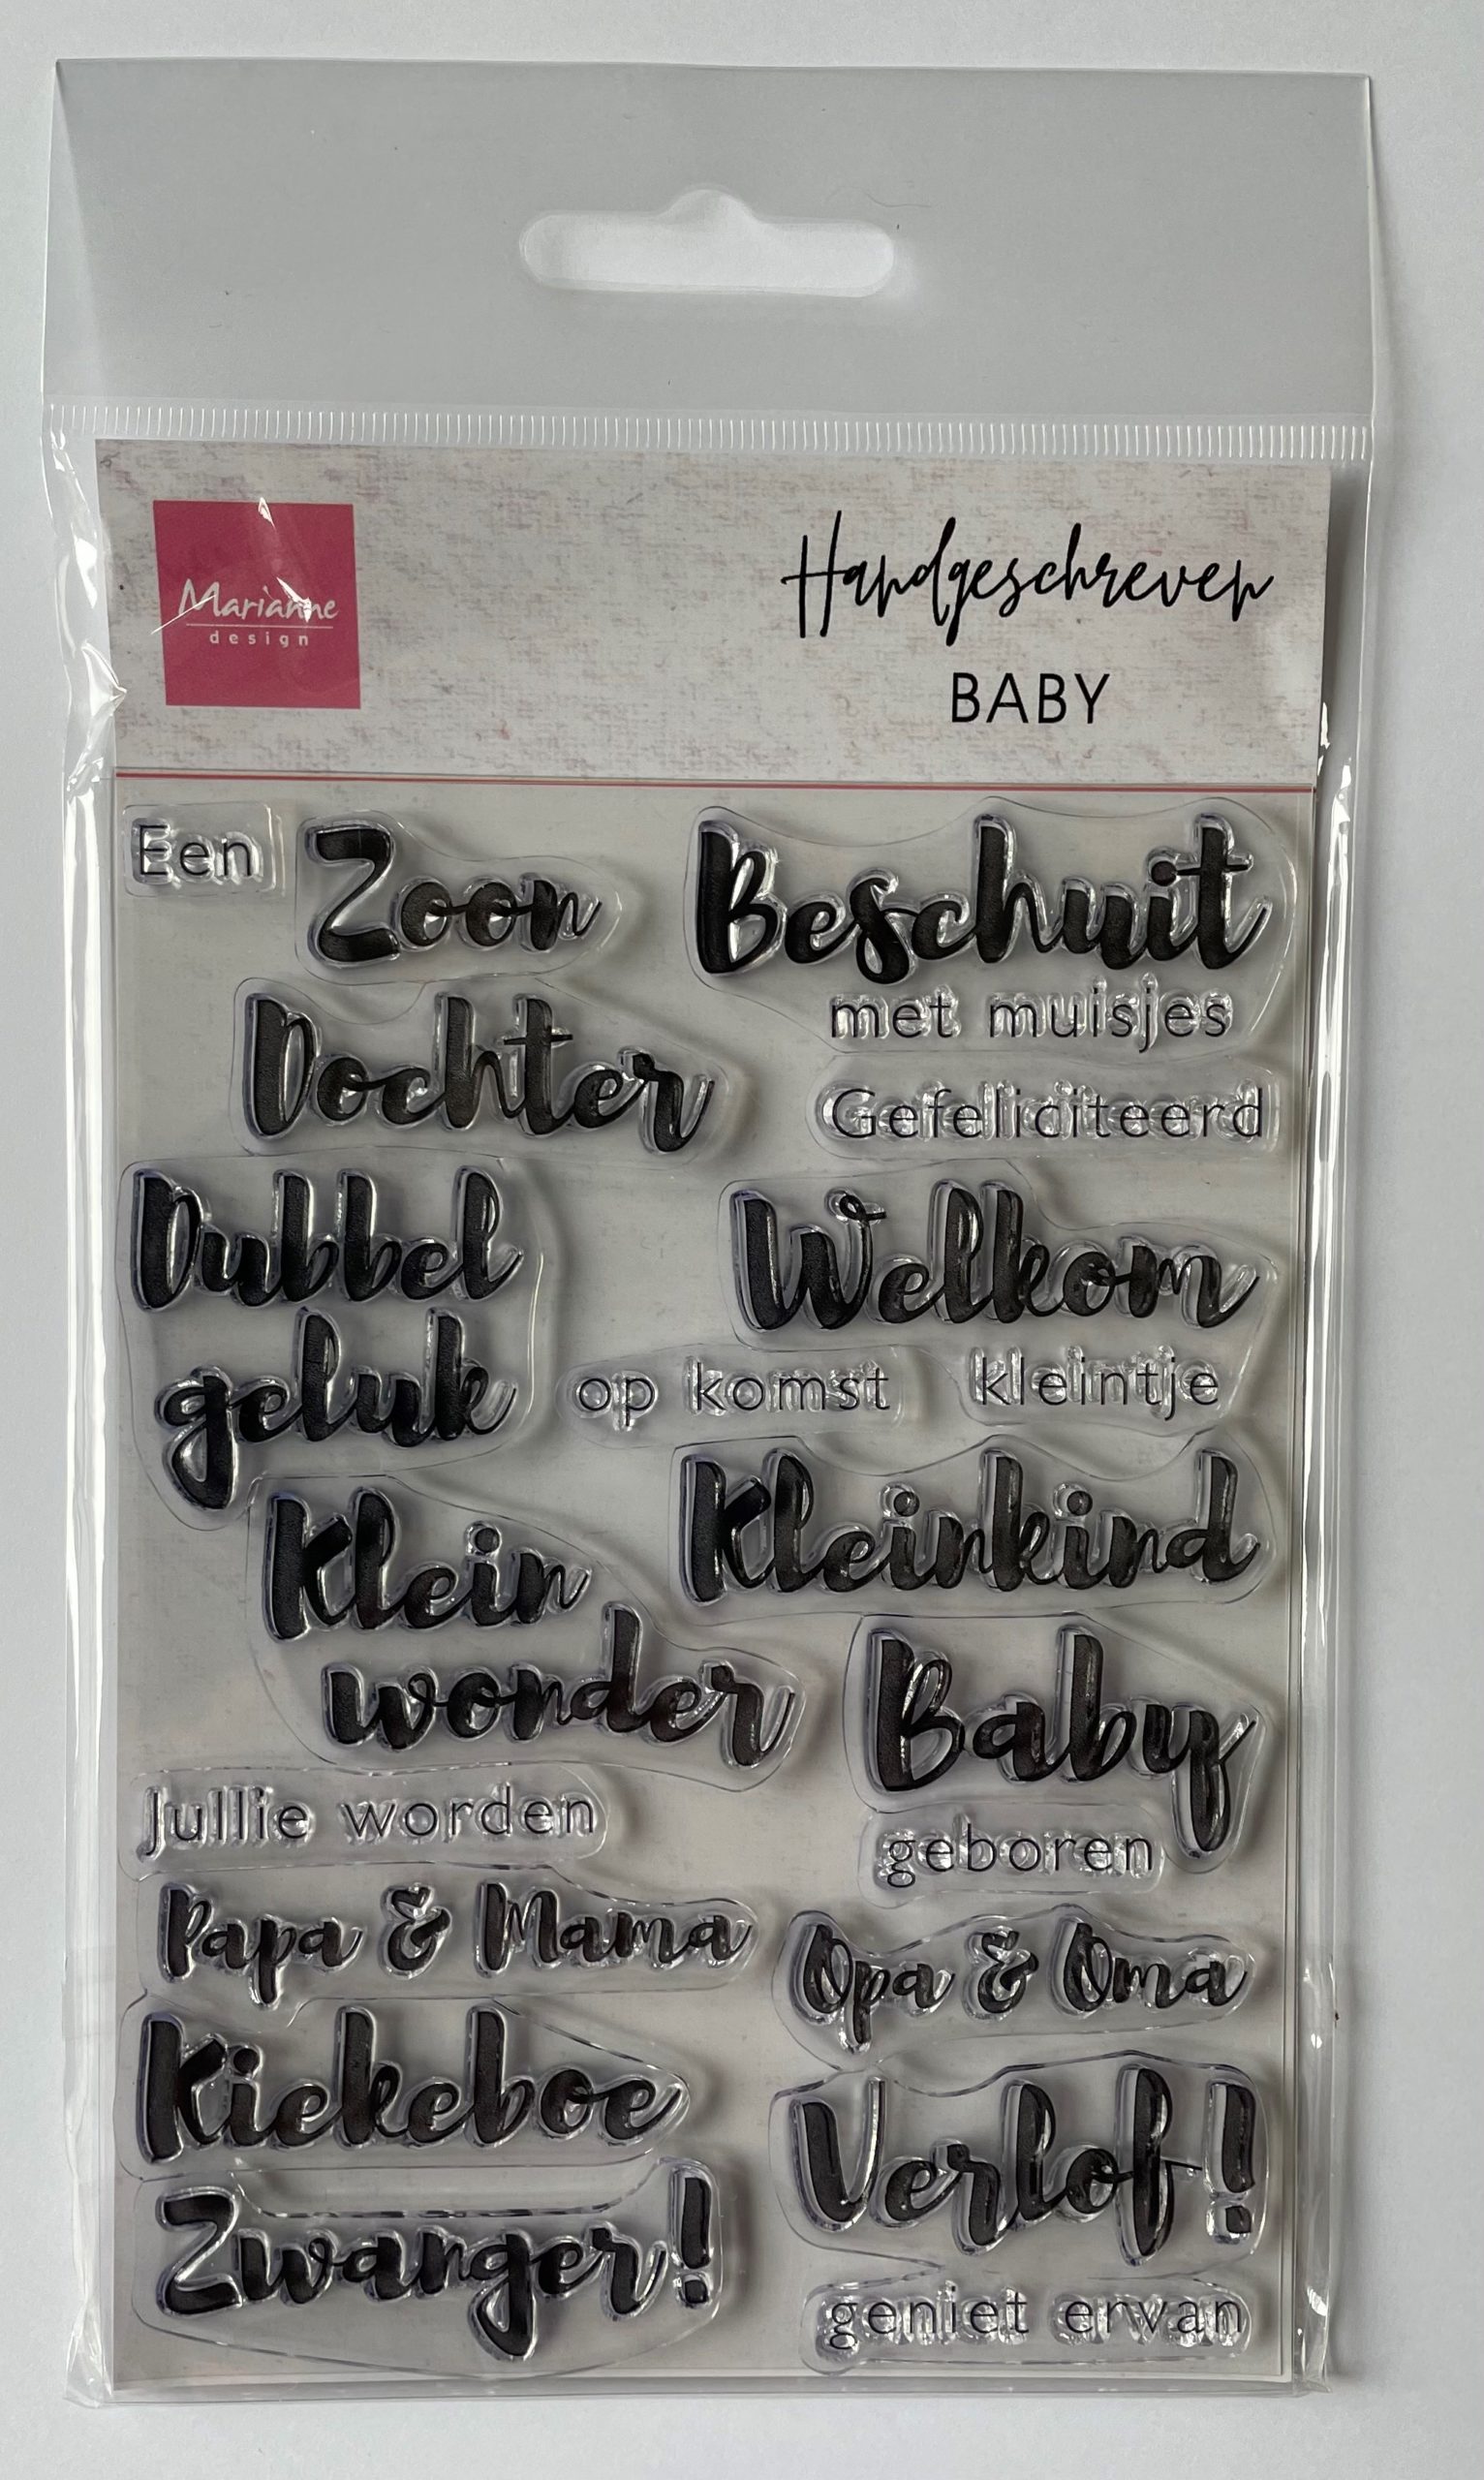 Marianne
design
Handgeschreven
BABY
Een
Zoon
Beschuit
met muisjes
Dochter
Gefeliciteerd
Dubbel
geluk
Welkom
op komst
kleintje
Klein
wonder
Kleinkind
Baby
geboren
Jullie worden
Papa & Mama
Opa & Oma
Kiekeboe
Verlof!
Zwanger!
geniet ervan